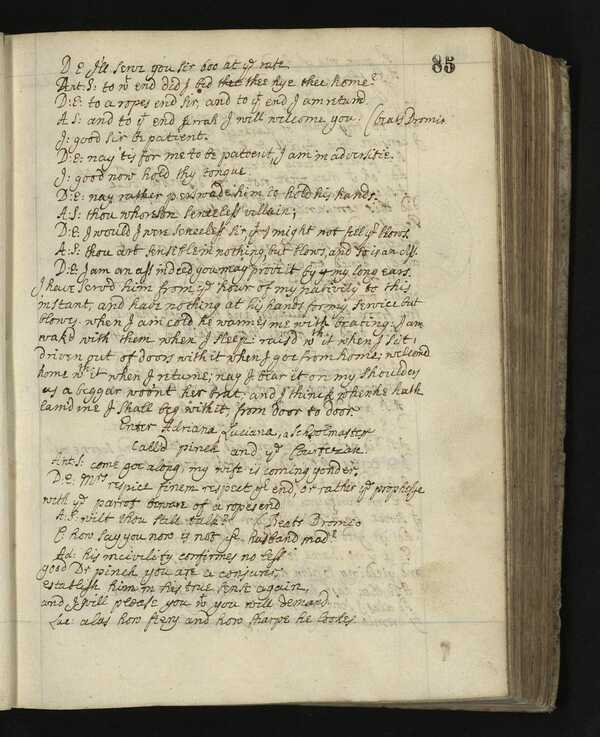 85
D: E I'le serve you sir 500 at yᵉ rate
Ant: S: to wᵗ end did I bid thee hye thee home?
D: E: to a ropes end sir, and to yᵗ end I am returnd.
A S: and to yᵗ end sirrah I will welcome you. (beats Dromio
J: good sir be patient.
D: E: nay 'tis for me to be patient, I am in adversitie.
J: good now hold thy tongue
D: E: nay rather perswade him to hold his hands.
A: S: thou whorson senceless villain;
D: E: I would I were senceless sir yᵗ I might not feel yᵉ blows
A: S: thou art senseble in nothing but blows, and so is an ass.
D: E: I am an ass indeed you may prove it by my long ears.
I have serv'd him from yᵉ hour of my nativety to this
instant, and have nothing at his hands for my service but
blowes. when I am cold he warmes me with beating: I am
wak'd with them when I sleep: raisd wᵗʰ it when I sit:
driven out of doors with it when I goe from home, welcomd
home wᵗʰ it when I returne; nay I bear it on my shoulders
as a beggar woont her brat, and I think when he hath
lamd me I shall beg with it, from door to door.
Enter Adriana, Luciana, a Schoolmaster
call'd pinch and yᵉ Courtezan.
Ant: S: come goe along, my wife is coming yonder.
D: E: Mʳˢ respice finem respect yʳ end, or rather yᵉ prophesye
with yᵉ parrot beware of a ropes end
A: S: wilt thou still talke? Beats Dromio
C how say you now is not yʳ husband mad?
Ad: his incivility confirmes no less:
good Dr pinch you are a conjurer,
establish him in his true sense again,
and I will please you wᵗ you will demand.
Luc: alas how fiery and how sharpe he lookes